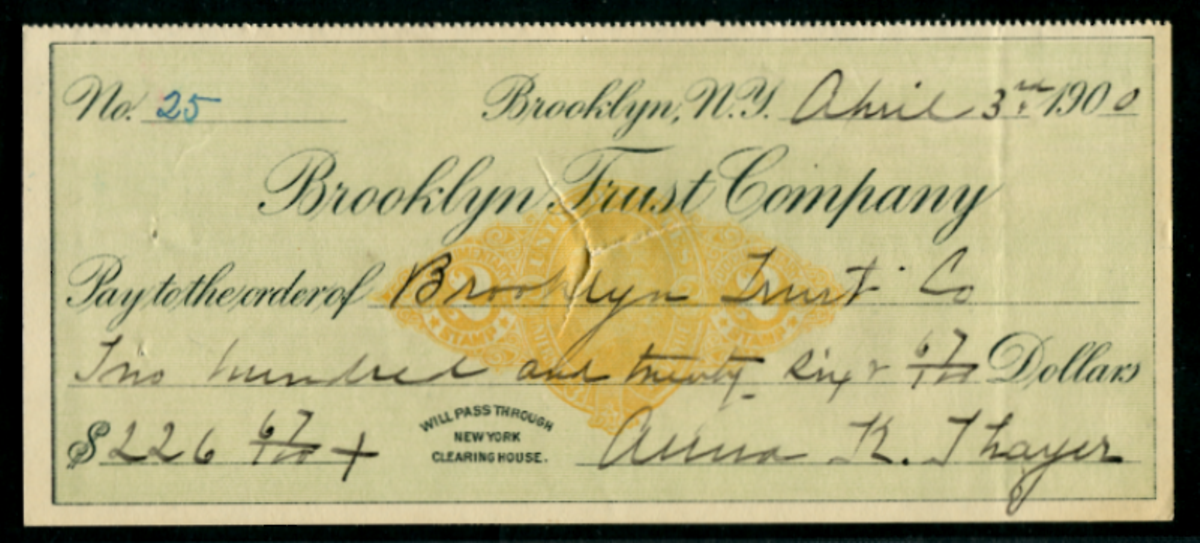 No. 25 Brooklyn, N.Y. April 3rd 1900
Brooklyn Trust Company
Pay to the order of Brooklyn Trust Co
Two hundred and twenty six & 67/100 Dollars
$ 226 67/100
WILL PASS THROUGH
NEW YORK
CLEARING HOUSE.
Anna K. Thayer
2 2
STAMP STAMP